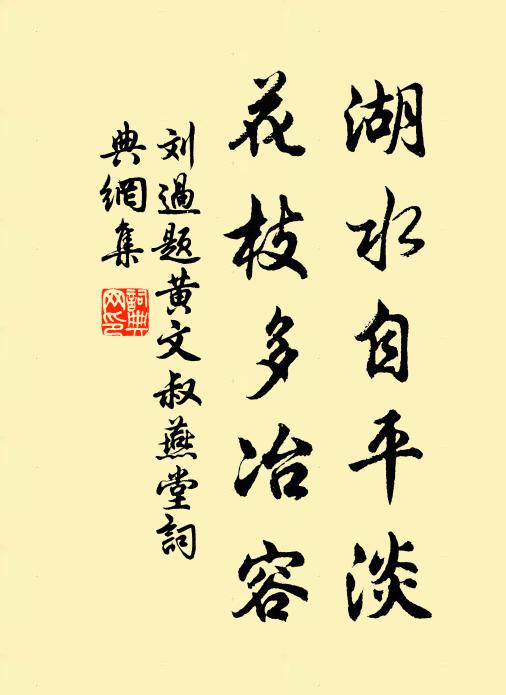 湖水自平淡
花枝多冶容
刘過题黄文叔燕堂詞
典網集
詞典
网印